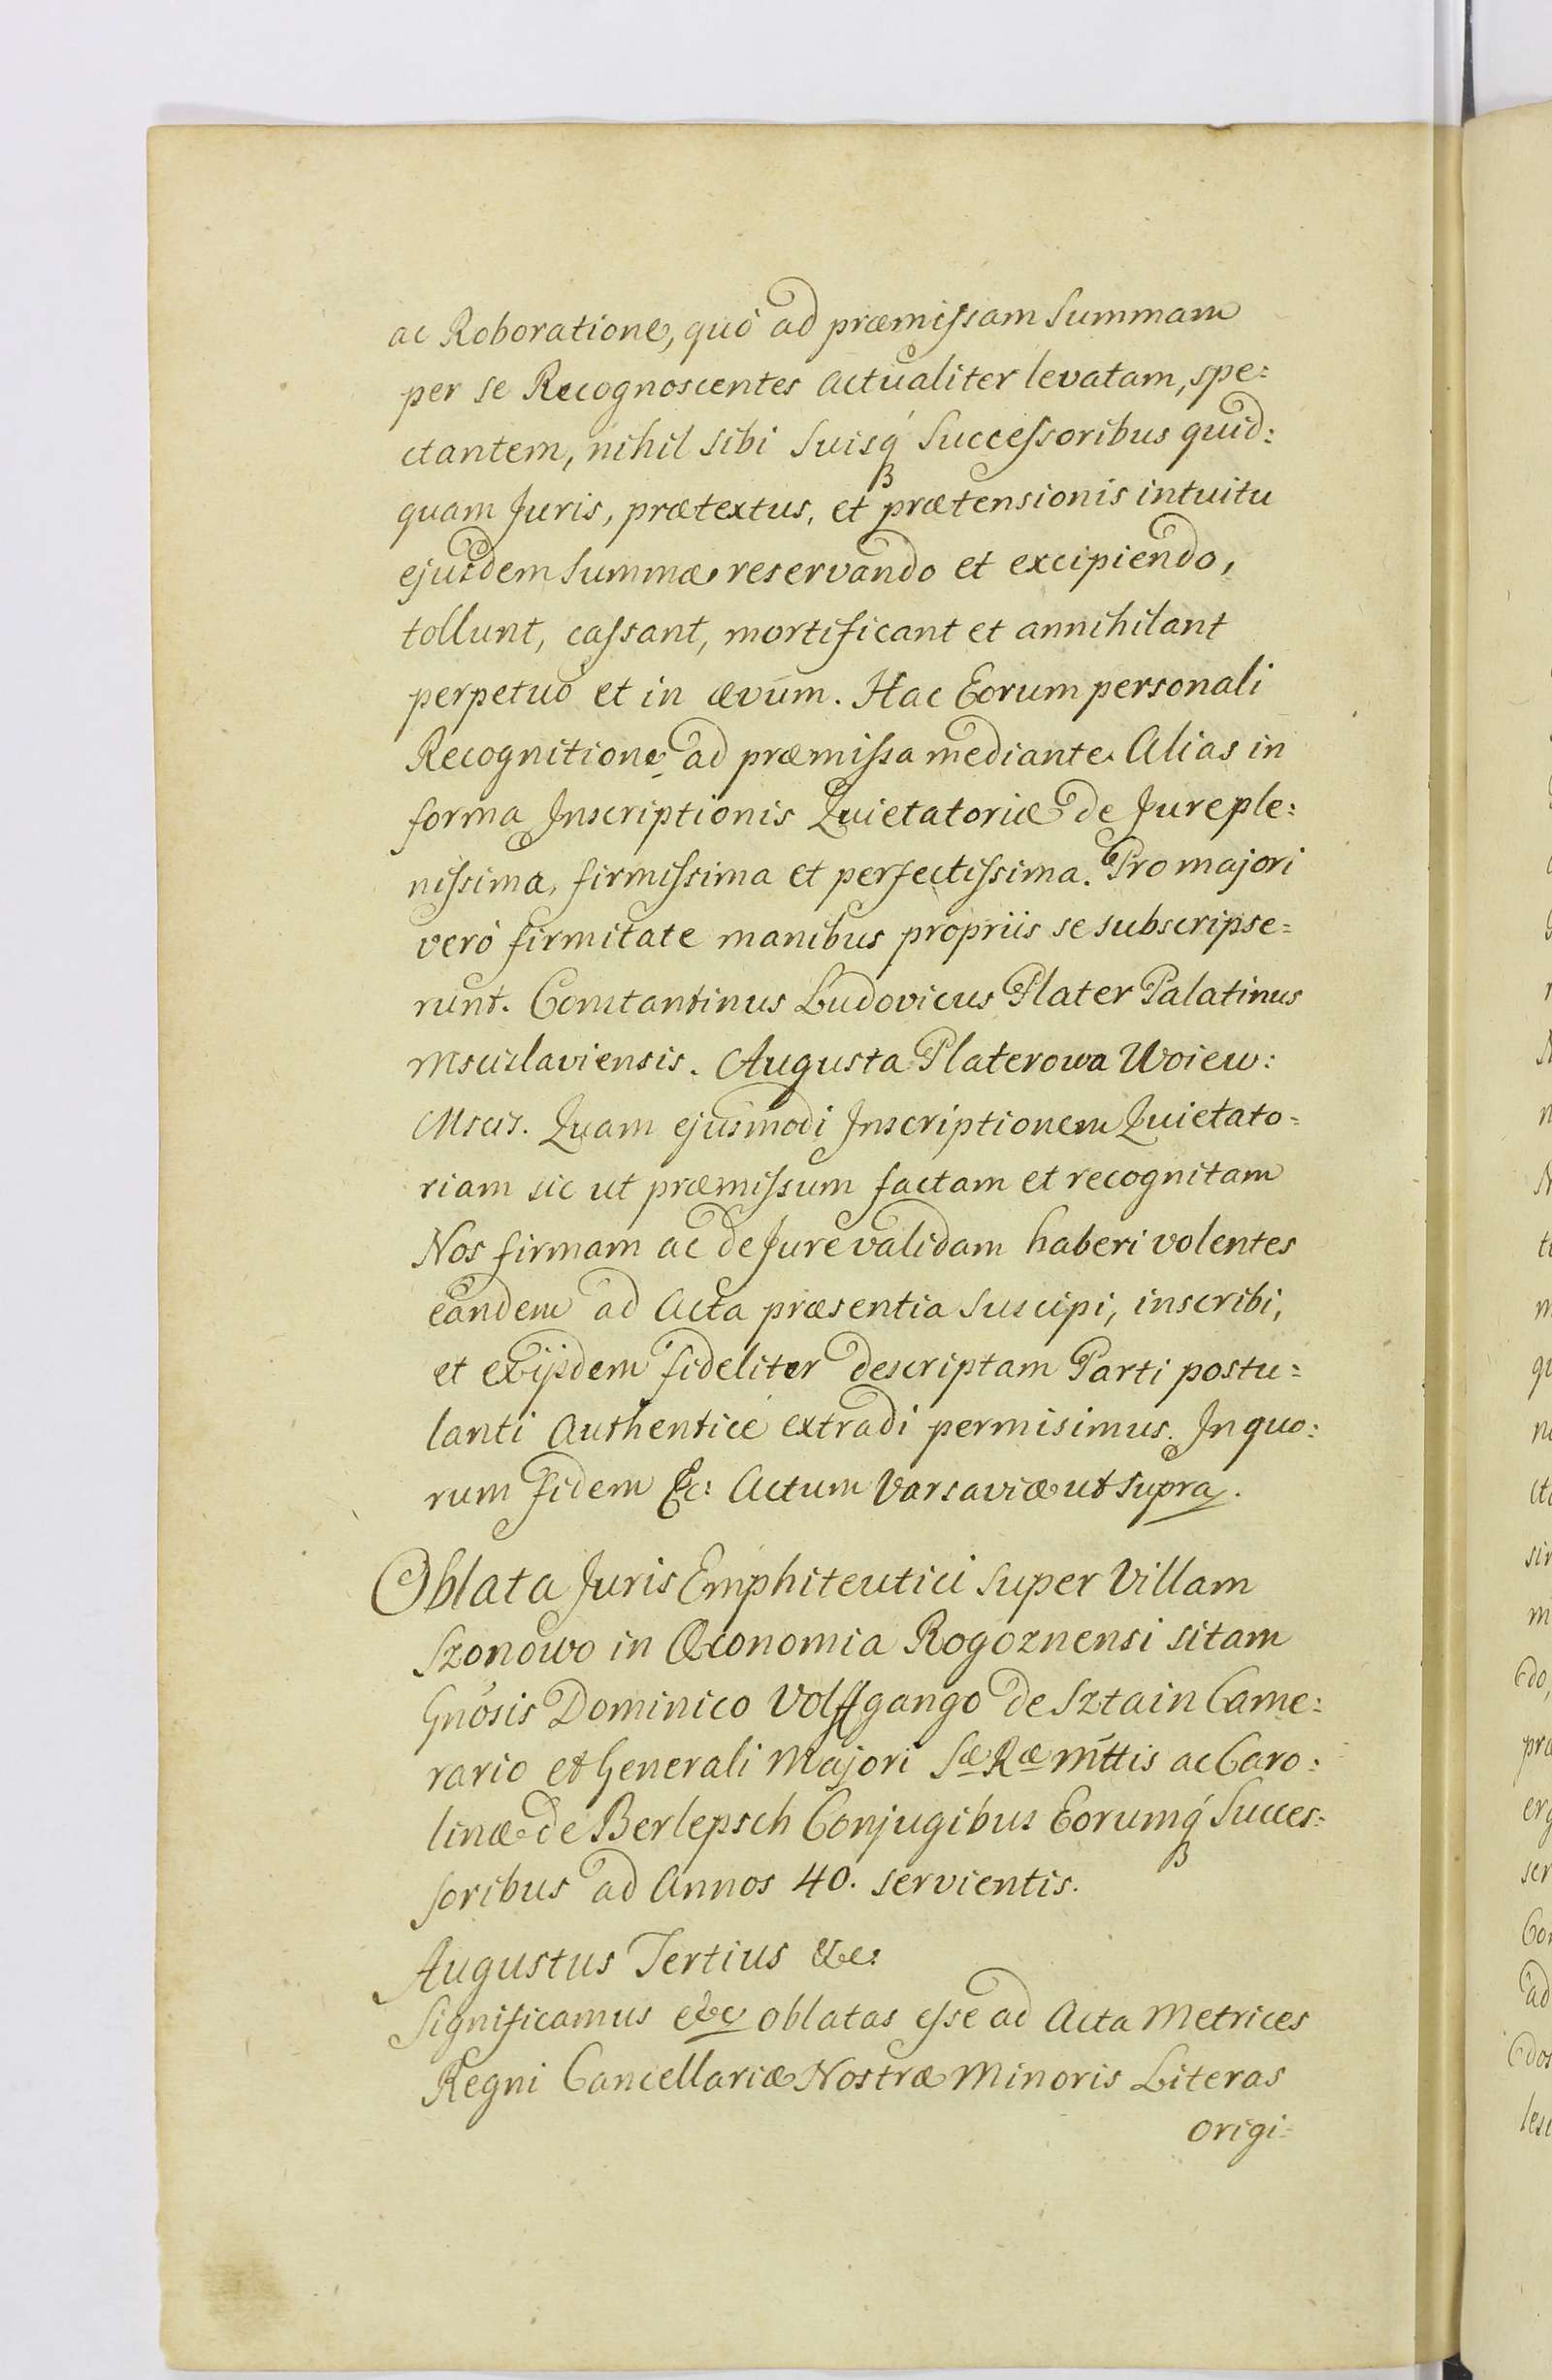 ac Roboratione, quò ad præmissam Summam
per se Recognoscentes actualiter levatam, spe:
ctantem, nihil sibi Suisq́ Successoribus quid:
quam Juris, prætextus, et prætensionis intuitu
ejusdem Summæ reservando et excipiendo,
tollunt, cassant, mortificant et annihilant
perpetuò et in ævum. Hac Eorum personali
Recognitione ad præmissa mediante. Alias in
forma Inscriptionis Quietatoriæ de Jure ple:
nissima, firmissima et perfectissima. Pro majori
verò firmitate manibus propriis se subscripse=
runt. Constantinus Ludovicus Plater Palatinus
Mscislaviensis. Augusta Platerowa Woiew:
Mscis. Quam ejusmodi Inscriptionem Quietato=
riam sic ut præmissum factam et recognitam
Nos firmam ac de Jure validam haberi volentes
eandem ad Acta præsentia suscipi, inscribi,
et ex ijsdem fideliter descriptam Parti postu=
lanti Authenticè extradi permisimus. In quo:
rum fidem &c: Actum Varsaviæ ut supra.
Oblata Juris Emphiteutici super Villam
Szonowo in Œconomia Rogoznensi sitam
Gnósis Dominico Volffgango de Sztain Came:
rario et Generali Majori Sæ Ræ Mttis ac Caro:
linæ de Berlepsch Conjugibus Eorumq́ Succes:
soribus ad Annos 40. servientis.
Augustus Tertius &c:
Significamus &c oblatas esse ad Acta Metrices
Regni Cancellariæ Nostræ Minoris Literas
origi=